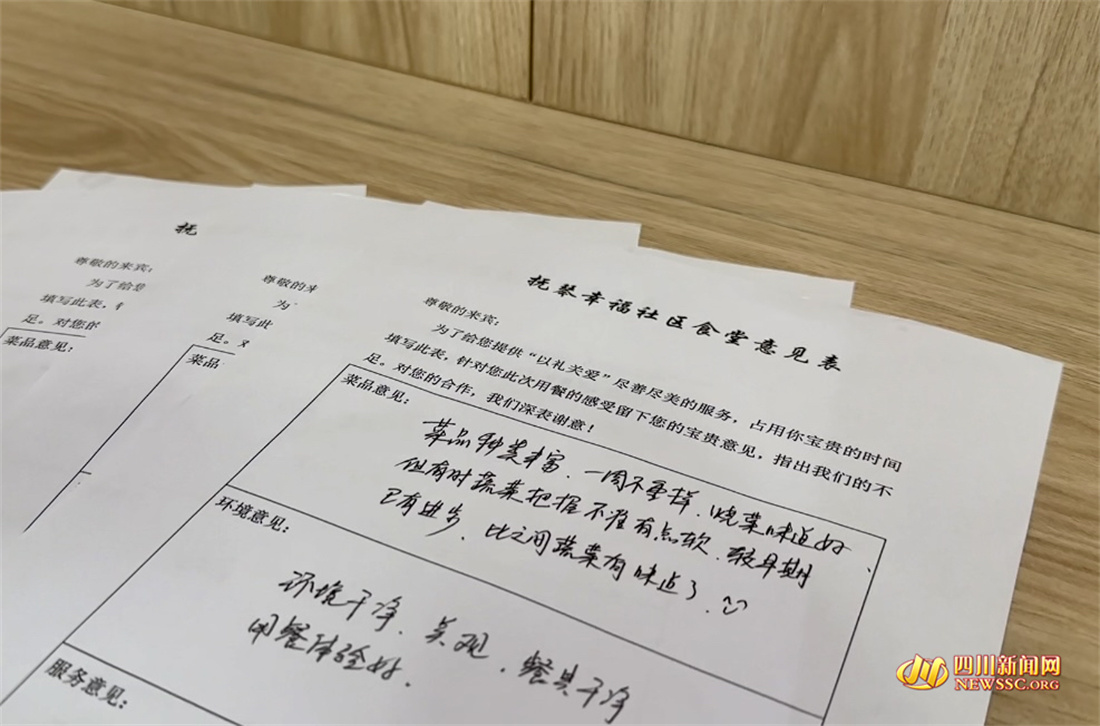 抚
尊敬的来宾:
为了给您
填写此表,
足。对您的
菜品意见:
尊敬的来
为
填写此
足。对
菜品
抚琴幸福社区食堂意见表
尊敬的来宾:
为了给您提供“以礼关爱”尽善尽美的服务,占用你宝贵的时间
填写此表,针对您此次用餐的感受留下您的宝贵意见,指出我们的不
足。对您的合作,我们深表谢意!
菜品意见:
菜品种类丰富、一周不重样,烧菜味道好、
但有时蔬菜把握不准有点软、较早期
已有进步、比之间蔬菜有味点了、
环境意见:
环境干净、美观、餐具干净
用餐体验好.
服务意见:
四川新闻网
NEWSSC.ORG